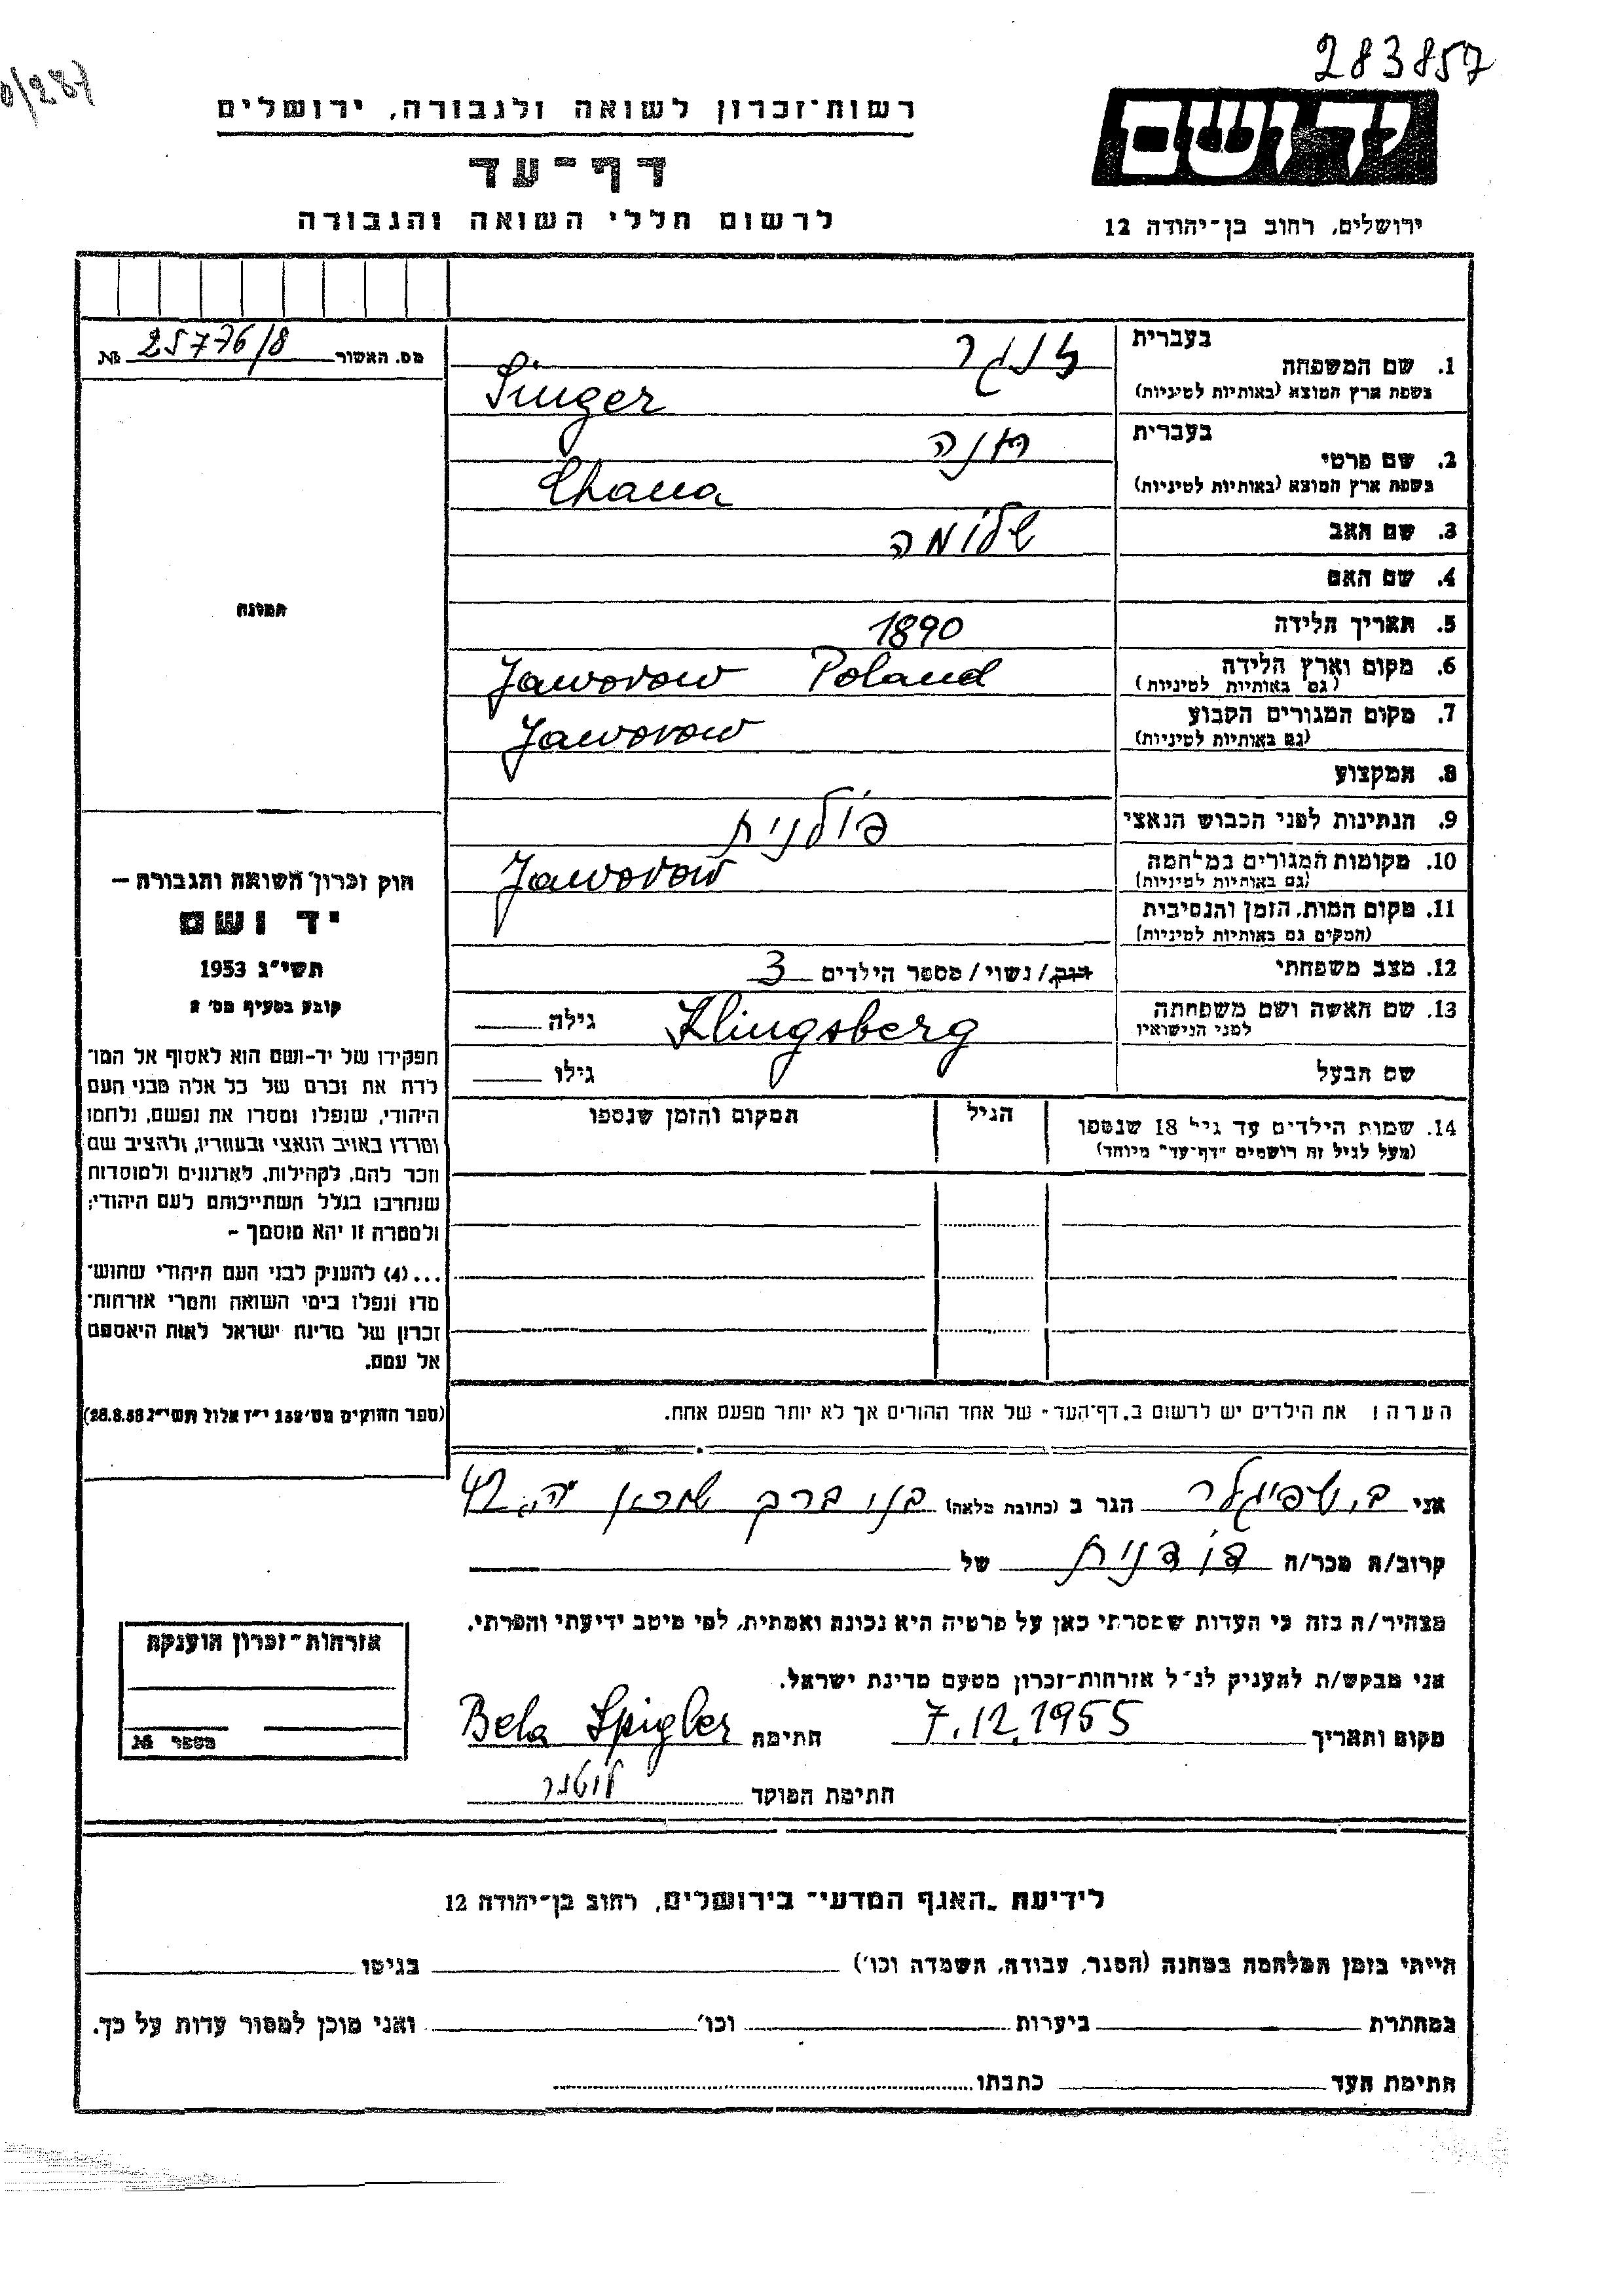 283857
רשות־זכרון לשואה ולגבורה, ירושלים
יד ושם
דף־עד
לרשום חללי השואה והגבורה
ירושלים, רחוב בן־יהודה 12
מס. האשור 25776/8 №
בעברית
1. שם המשפחה זנגר
בשפת ארץ המוצא (באותיות לטיניות) Singer
בעברית
2. שם פרטי חנה
בשפת ארץ המוצא (באותיות לטיניות) Chana
3. שם האב שלומה
4. שם האם
5. תאריך הלידה 1890
6. מקום וארץ הלידה
(גם באותיות לטיניות) Jaworow Poland
7. מקום המגורים הקבוע
(גם באותיות לטיניות) Jaworow
8. המקצוע
9. הנתינות לפני הכבוש הנאצי פולנית
10. מקומות המגורים במלחמה
(גם באותיות לטיניות) Jaworow
11. מקום המות, הזמן והנסיבות
(המקום גם באותיות לטיניות)
12. מצב משפחתי רוק/ נשוי/ מספר הילדים 3
13. שם האשה ושם משפחתה
לפני הנישואין Klingsberg גילה
שם הבעל גילו
14. שמות הילדים עד גיל 18 שנספו
(מעל לגיל זה רושמים "דף־עד" מיוחד)
הגיל
המקום והזמן שנספו
הערה: את הילדים יש לרשום ב"דף־העד" של אחד ההורים אך לא יותר מפעם אחת.
התמונה
חוק זכרון השואה והגבורה —
יד ושם
תשי"ג 1953
קובע בסעיף מס' 2
תפקידו של יד-ושם הוא לאסוף אל המו־
לדת את זכרם של כל אלה מבני העם
היהודי, שנפלו ומסרו את נפשם, נלחמו
ומרדו באויב הנאצי ובעוזריו, ולהציב שם
וזכר להם, לקהילות, לארגונים ולמוסדות
שנחרבו בגלל השתייכותם לעם היהודי;
ולמטרה זו יהא מוסמך –
...(4) להעניק לבני העם היהודי שהוש־
מדו ונפלו בימי השואה והמרי אזרחות־
זכרון של מדינת ישראל לאות היאספם
אל עמם.
(ספר החוקים מס' 132 י"ז אלול תשי"ג 28.8.53)
אני ב. שפיגלר הגר ב (כתובת מלאה) בני ברק
קרוב/ה מכר/ה בת דודנית של
מצהיר/ה בזה כי העדות שמסרתי כאן על פרטיה היא נכונה ואמתית, לפי מיטב ידיעתי והכרתי.
אני מבקש/ת להעניק לנ"ל אזרחות־זכרון מטעם מדינת ישראל.
מקום ותאריך 7.12.1955 חתימת Bela Spigler
חתימת הפוקד
אזרחות־זכרון הוענקה
מספר №
לידיעת "האגף המדעי" בירושלים, רחוב בן־יהודה 12
הייתי בזמן המלחמה במחנה (הסגר, עבודה, השמדה וכו') בגיטו
במחתרת ביערות וכו' ואני מוכן למסור עדות על כך.
חתימת העד כתבתו